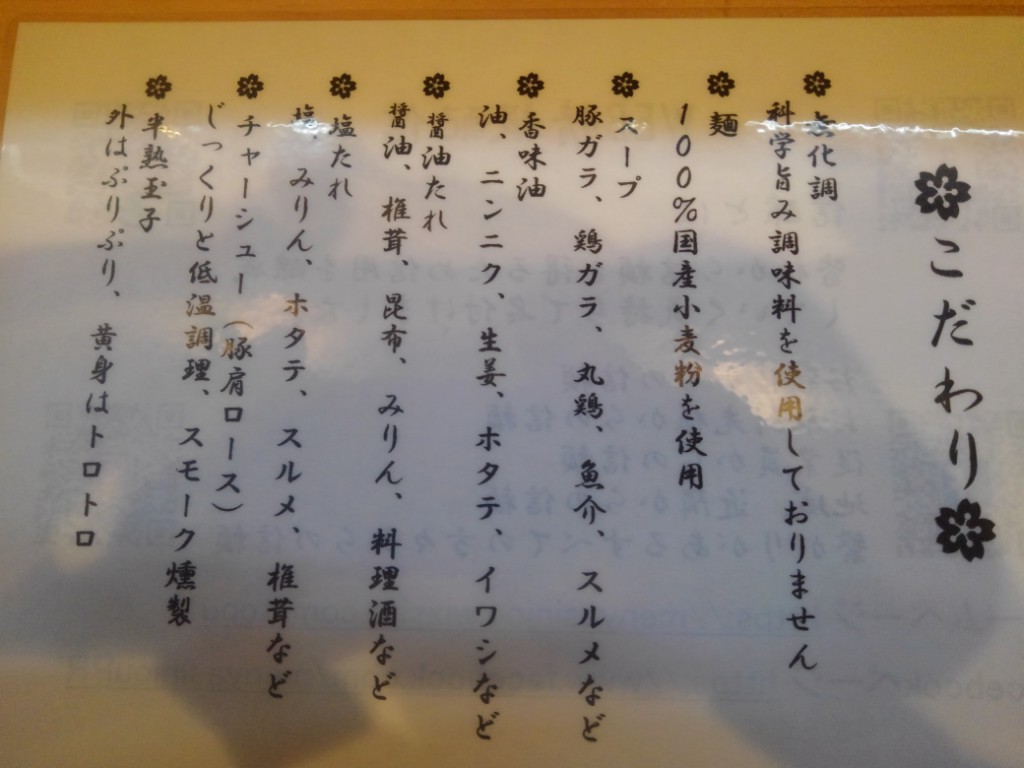 こだわり
無化調
科学旨み調味料を使用しておりません
麺
100%国産小麦粉を使用
スープ
豚ガラ、鶏ガラ、丸鶏、魚介、スルメなど
香味油
油、ニンニク、生姜、ホタテ、イワシなど
醤油たれ
醤油、椎茸、昆布、みりん、料理酒など
塩たれ
塩、みりん、ホタテ、スルメ、椎茸など
チャーシュー(豚肩ロース)
じっくりと低温調理、スモーク燻製
半熟玉子
外はぷりぷり、黄身はトロトロ